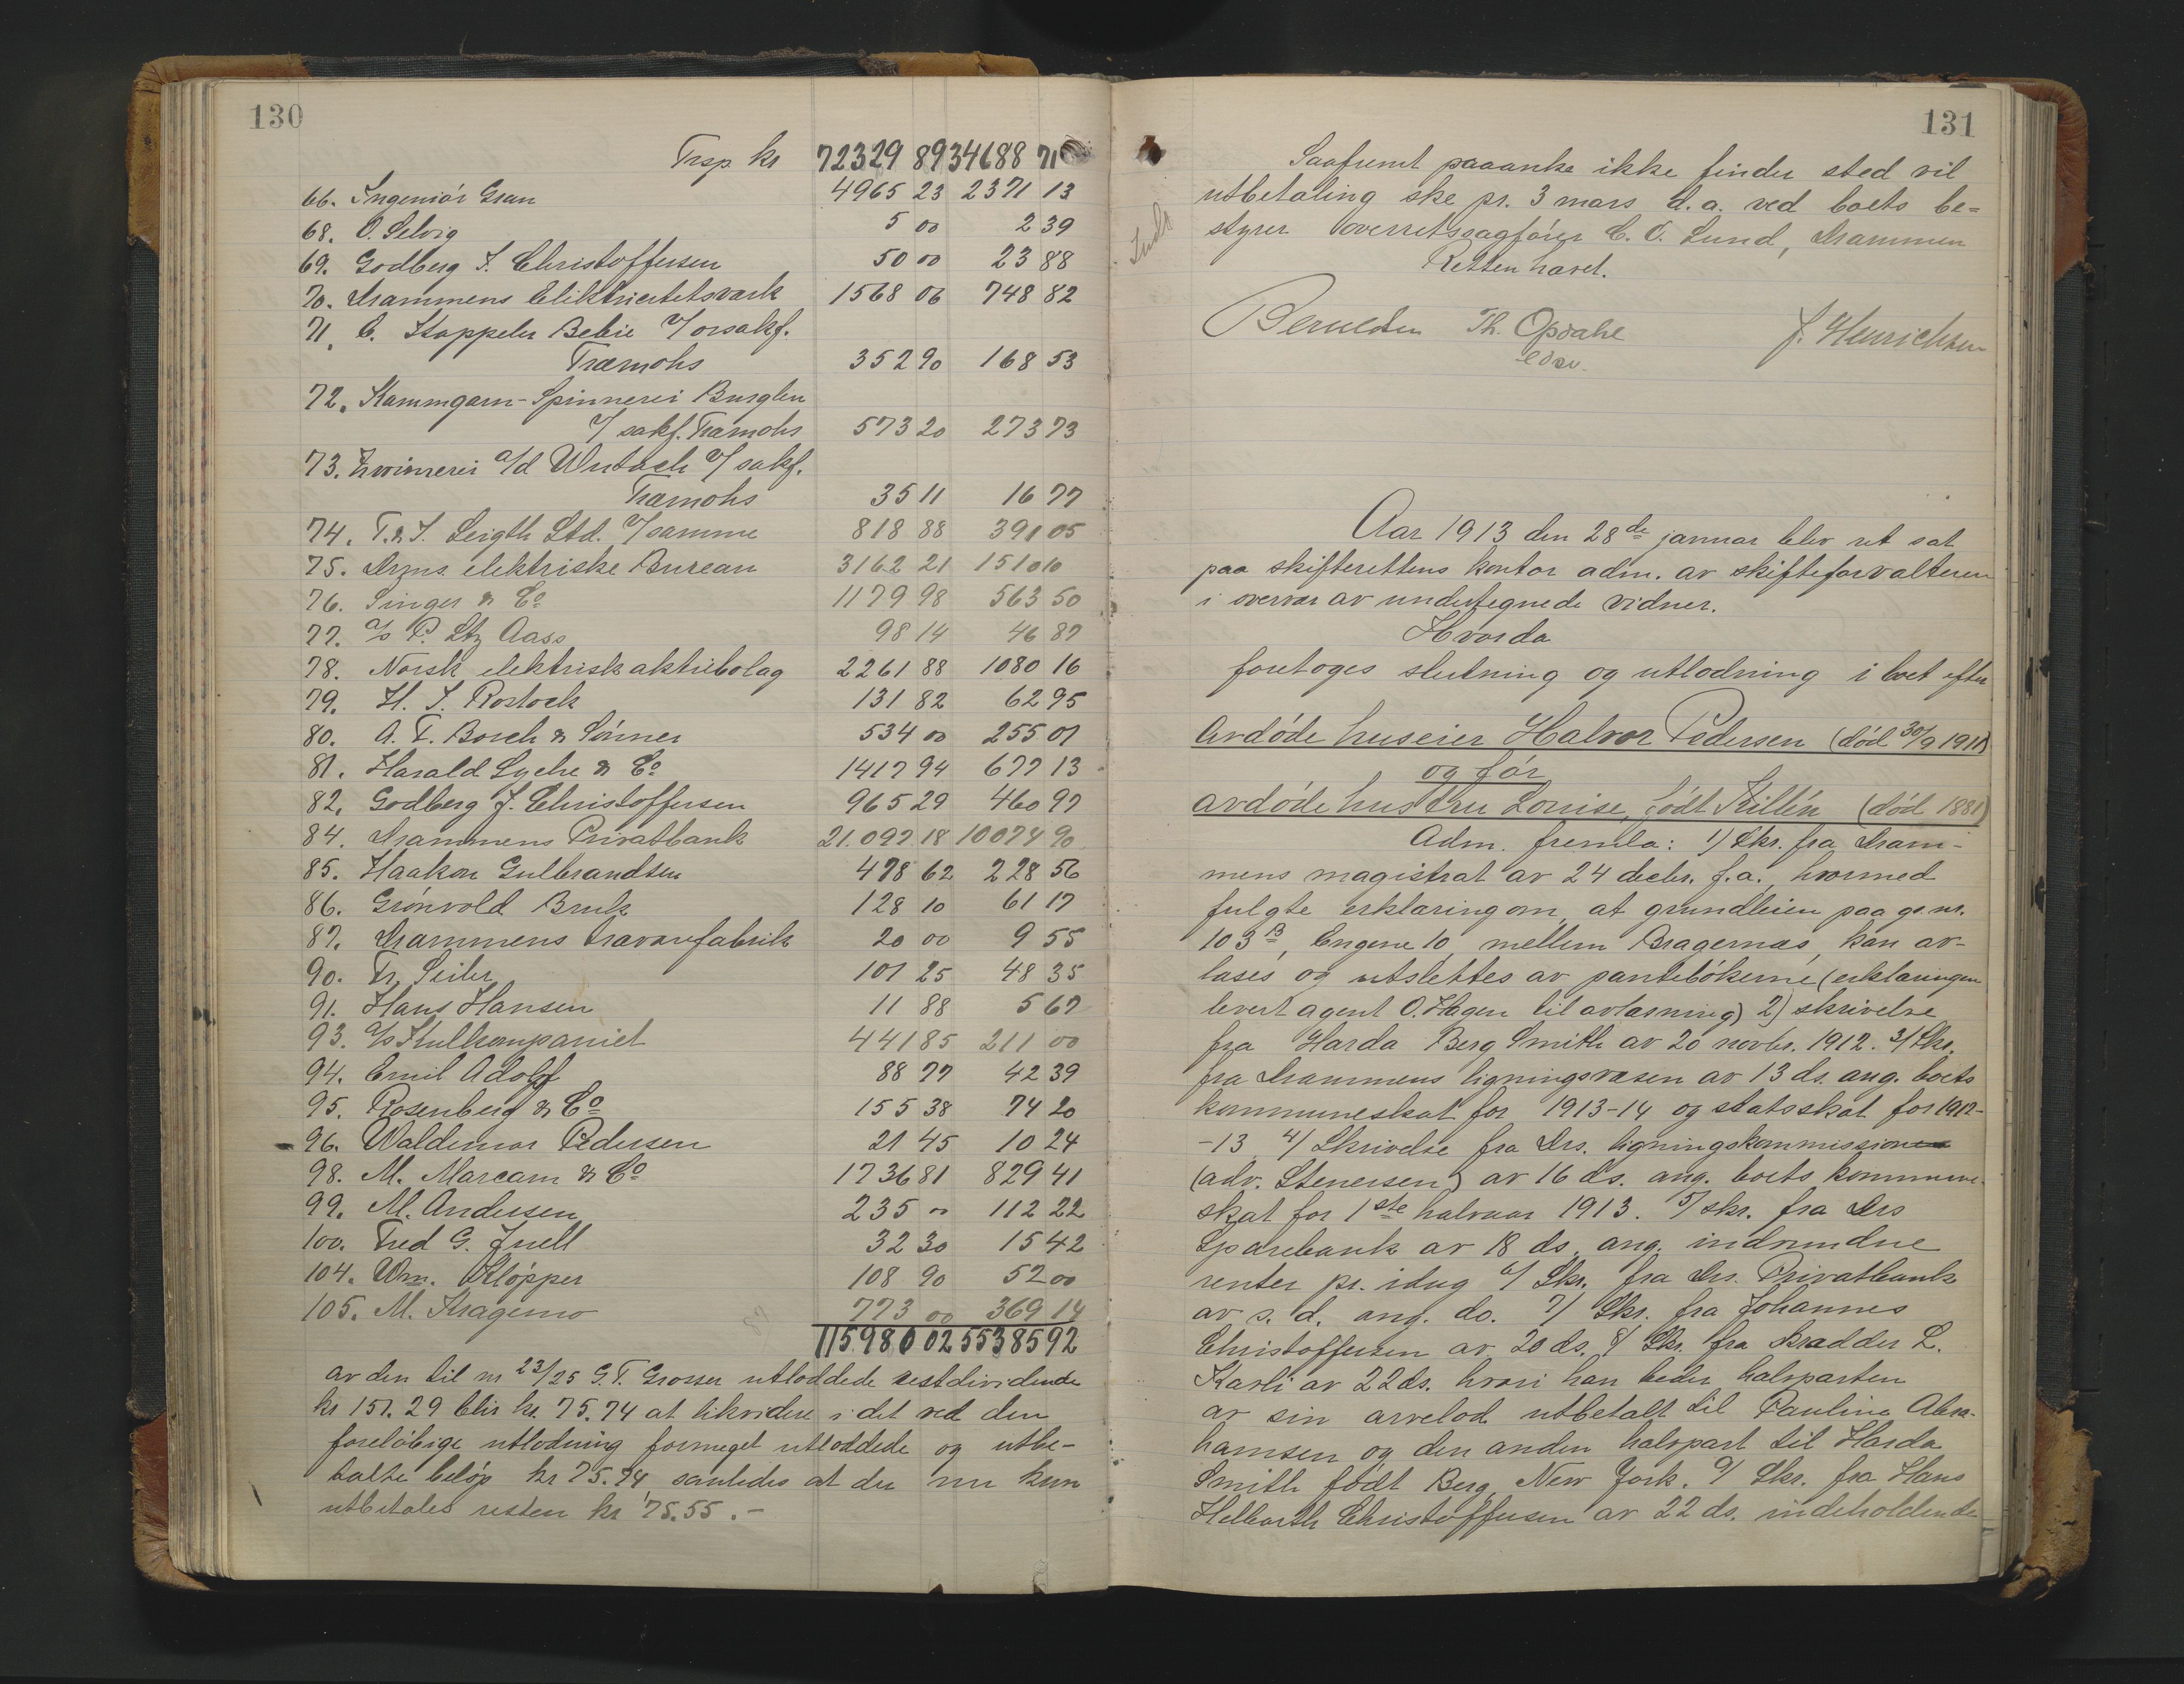 130
Trsp. kr 72329 89 34688 71
66. Ingeniör Gran 4965 23 2371 13
68. O. Selvig 5 00 2 39
69. Godberg J. Christoffersen 50 00 23 88
70. Drammens Elektricitetsverk 1568 06 748 82
71. C. Stappeler Bebie v/ orsakf.
Træmohs 352 90 168 53
72. Kammgarn-Spinnerei Burglen
v/ sakf. Træmohs 573 20 273 73
73. Zwirnerei a/d Wutach v/ sakf.
Træmohs 35 11 16 77
74. T. & J. Leigth Ltd. v/ samme 818 88 391 05
75. Drms. elektriske Bureau 3162 21 1510 10
76. Singer & Co 1179 98 563 50
77. a/s P. Ltz Aass 98 14 46 87
78. Norsk elektrisk aktiebolag 2261 88 1080 16
79. H. J. Rostock 131 82 62 95
80. A. T. Borch & Sönner 534 00 255 01
81. Harald Lyche & Co 1417 94 677 13
82. Godberg J. Christoffersen 965 29 460 97
84. Drammens Privatbank 21.097 18 10074 90
85. Haakon Gulbrandsen 478 62 228 56
86. Grönvold Bruk 128 10 61 17
87. Drammens travarefabrik 20 00 9 55
90. Fr. Seiler 101 25 48 35
91. Hans Hansen 11 88 5 67
93. a/s Kulkompaniet 441 85 211 00
94. Emil Adolf 88 77 42 39
95. Rosenberg & Co 155 38 74 20
96. Waldemar Pedersen 21 45 10 24
98. M. Marcam & Co 1736 81 829 41
99. M. Andersen 235 00 112 22
100. Fred G. Juell 32 30 15 42
104. Wm. Klöpper 108 90 52 00
105. M. Kragemo 773 00 369 14
115980 02 55385 92
av den til nr 23/25 G. T. Grosser utloddede restdividende
kr 151.29 blir kr. 75.74 at likvidere i det ved den
foreløbige utlodning formeget utloddede og utbe-
talte beløp kr 75.74, saaledes at der nu kun
utbetales resten kr 75.55.-
131
Saafremt paaanke ikke finder sted vil
utbetaling ske pr. 3 mars d.a. ved boets be-
styrer overretssagförer C. O. Lund, Drammen
Retten hævet.
Th. Opdahl J. Henrichsen
edsv.
Aar 1913 den 28de januar blev ret sat
paa skifterettens kontor adm. av skifteforvalteren
i overvær av undertegnede vidner.
Hvorda
foretoges slutning og utlodning i boet efter
Avdöde huseier Halvor Pedersen (död 30/9 1911)
og för
avdöde hustru Louise, födt Killén (död 1881)
Adm. fremla: 1) Skr. fra Dram-
mens magistrat av 24 decbr. f.a., hvormed
fulgte erklæring om, at grundleien paa gr.nr.
103 B, Engene 10, mellem Bragernæs, kan av-
løses og utslettes av pantebökerne (erklæringen
levert agent O. Hagen til avlæsning) 2) skrivelse
fra Harda Berg Smith av 20 novbr. 1912. 3/ Skr.
fra Drammens ligningsvæsen av 13 ds. ang. boets
kommuneskat for 1913-14 og statsskat for 1912-
-13 4/ Skrivelse fra Drs. ligningskommission
(adv. Stenersen) av 16 ds. ang. boets kommune-
skat for 1ste halvaar 1913. 5/ skr. fra Drs
Sparebank av 18 ds. ang. indvundne
renter pr. idag 6/ Skr. fra Drs. Privatbank
av s. d. ang. do. 7/ Skr. fra Johannes
Christoffersen av 20 ds. 8/ Skr. fra skrædder L.
Karli av 22 ds. hvori han beder halvparten
av sin arvelod utbetalt til Pauline Abra-
hamsen og den anden halvpart til Harda
Smith födt Berg, New York. 9/ Skr. fra Hans
Helbarth Christoffersen av 22 ds. indeholdende